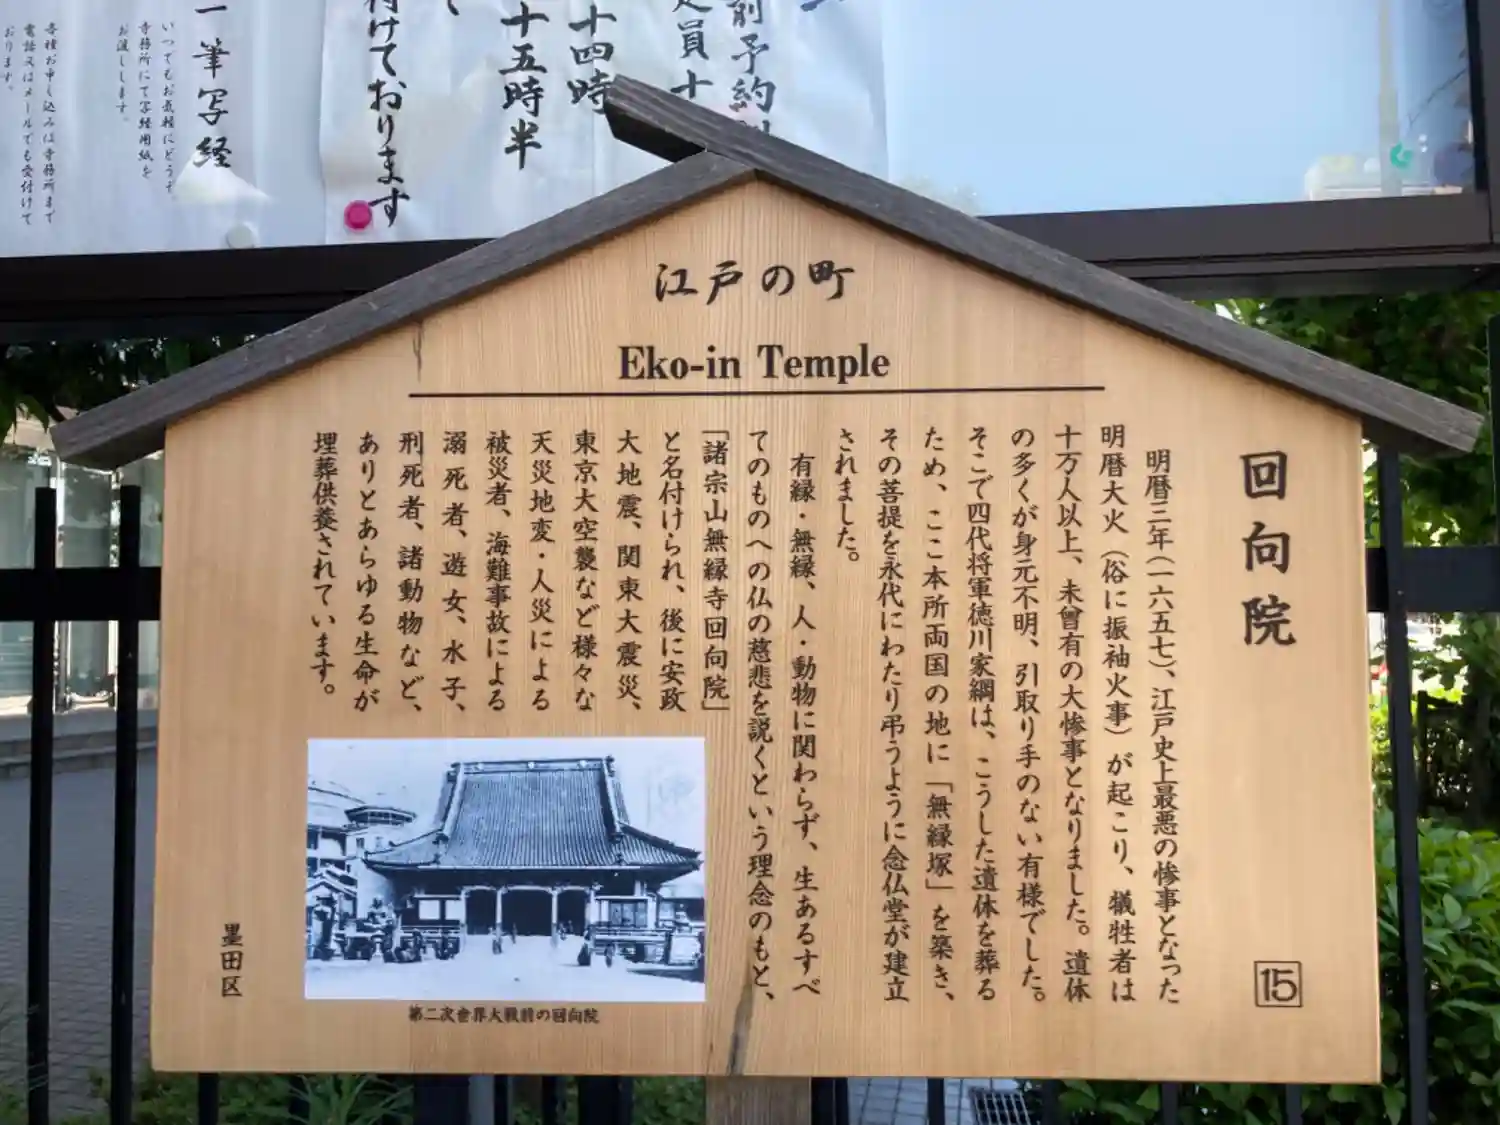 前予約
定員十
十四時
十五時半
て
付けております
一筆写経
いつでもお気軽にどうぞ
寺務所にて写経用紙を
お渡しします。
各種お申し込みは寺務所まで
電話又はメールでも受付けて
おります。
江戸の町
Eko-in Temple
回向院
15
明暦三年(一六五七)、江戸史上最悪の惨事となった
明暦大火（俗に振袖火事）が起こり、犠牲者は
十万人以上、未曾有の大惨事となりました。遺体
の多くが身元不明、引取り手のない有様でした。
そこで四代将軍徳川家綱は、こうした遺体を葬る
ため、ここ本所両国の地に「無縁塚」を築き、
その菩提を永代にわたり弔うように念仏堂が建立
されました。
有縁・無縁、人・動物に関わらず、生あるすべ
てのものへの仏の慈悲を説くという理念のもと、
「諸宗山無縁寺回向院」
と名付けられ、後に安政
大地震、関東大震災、
東京大空襲など様々な
天災地変・人災による
被災者、海難事故による
溺死者、遊女、水子、
刑死者、諸動物など、
ありとあらゆる生命が
埋葬供養されています。
第二次世界大戦前の回向院
墨田区